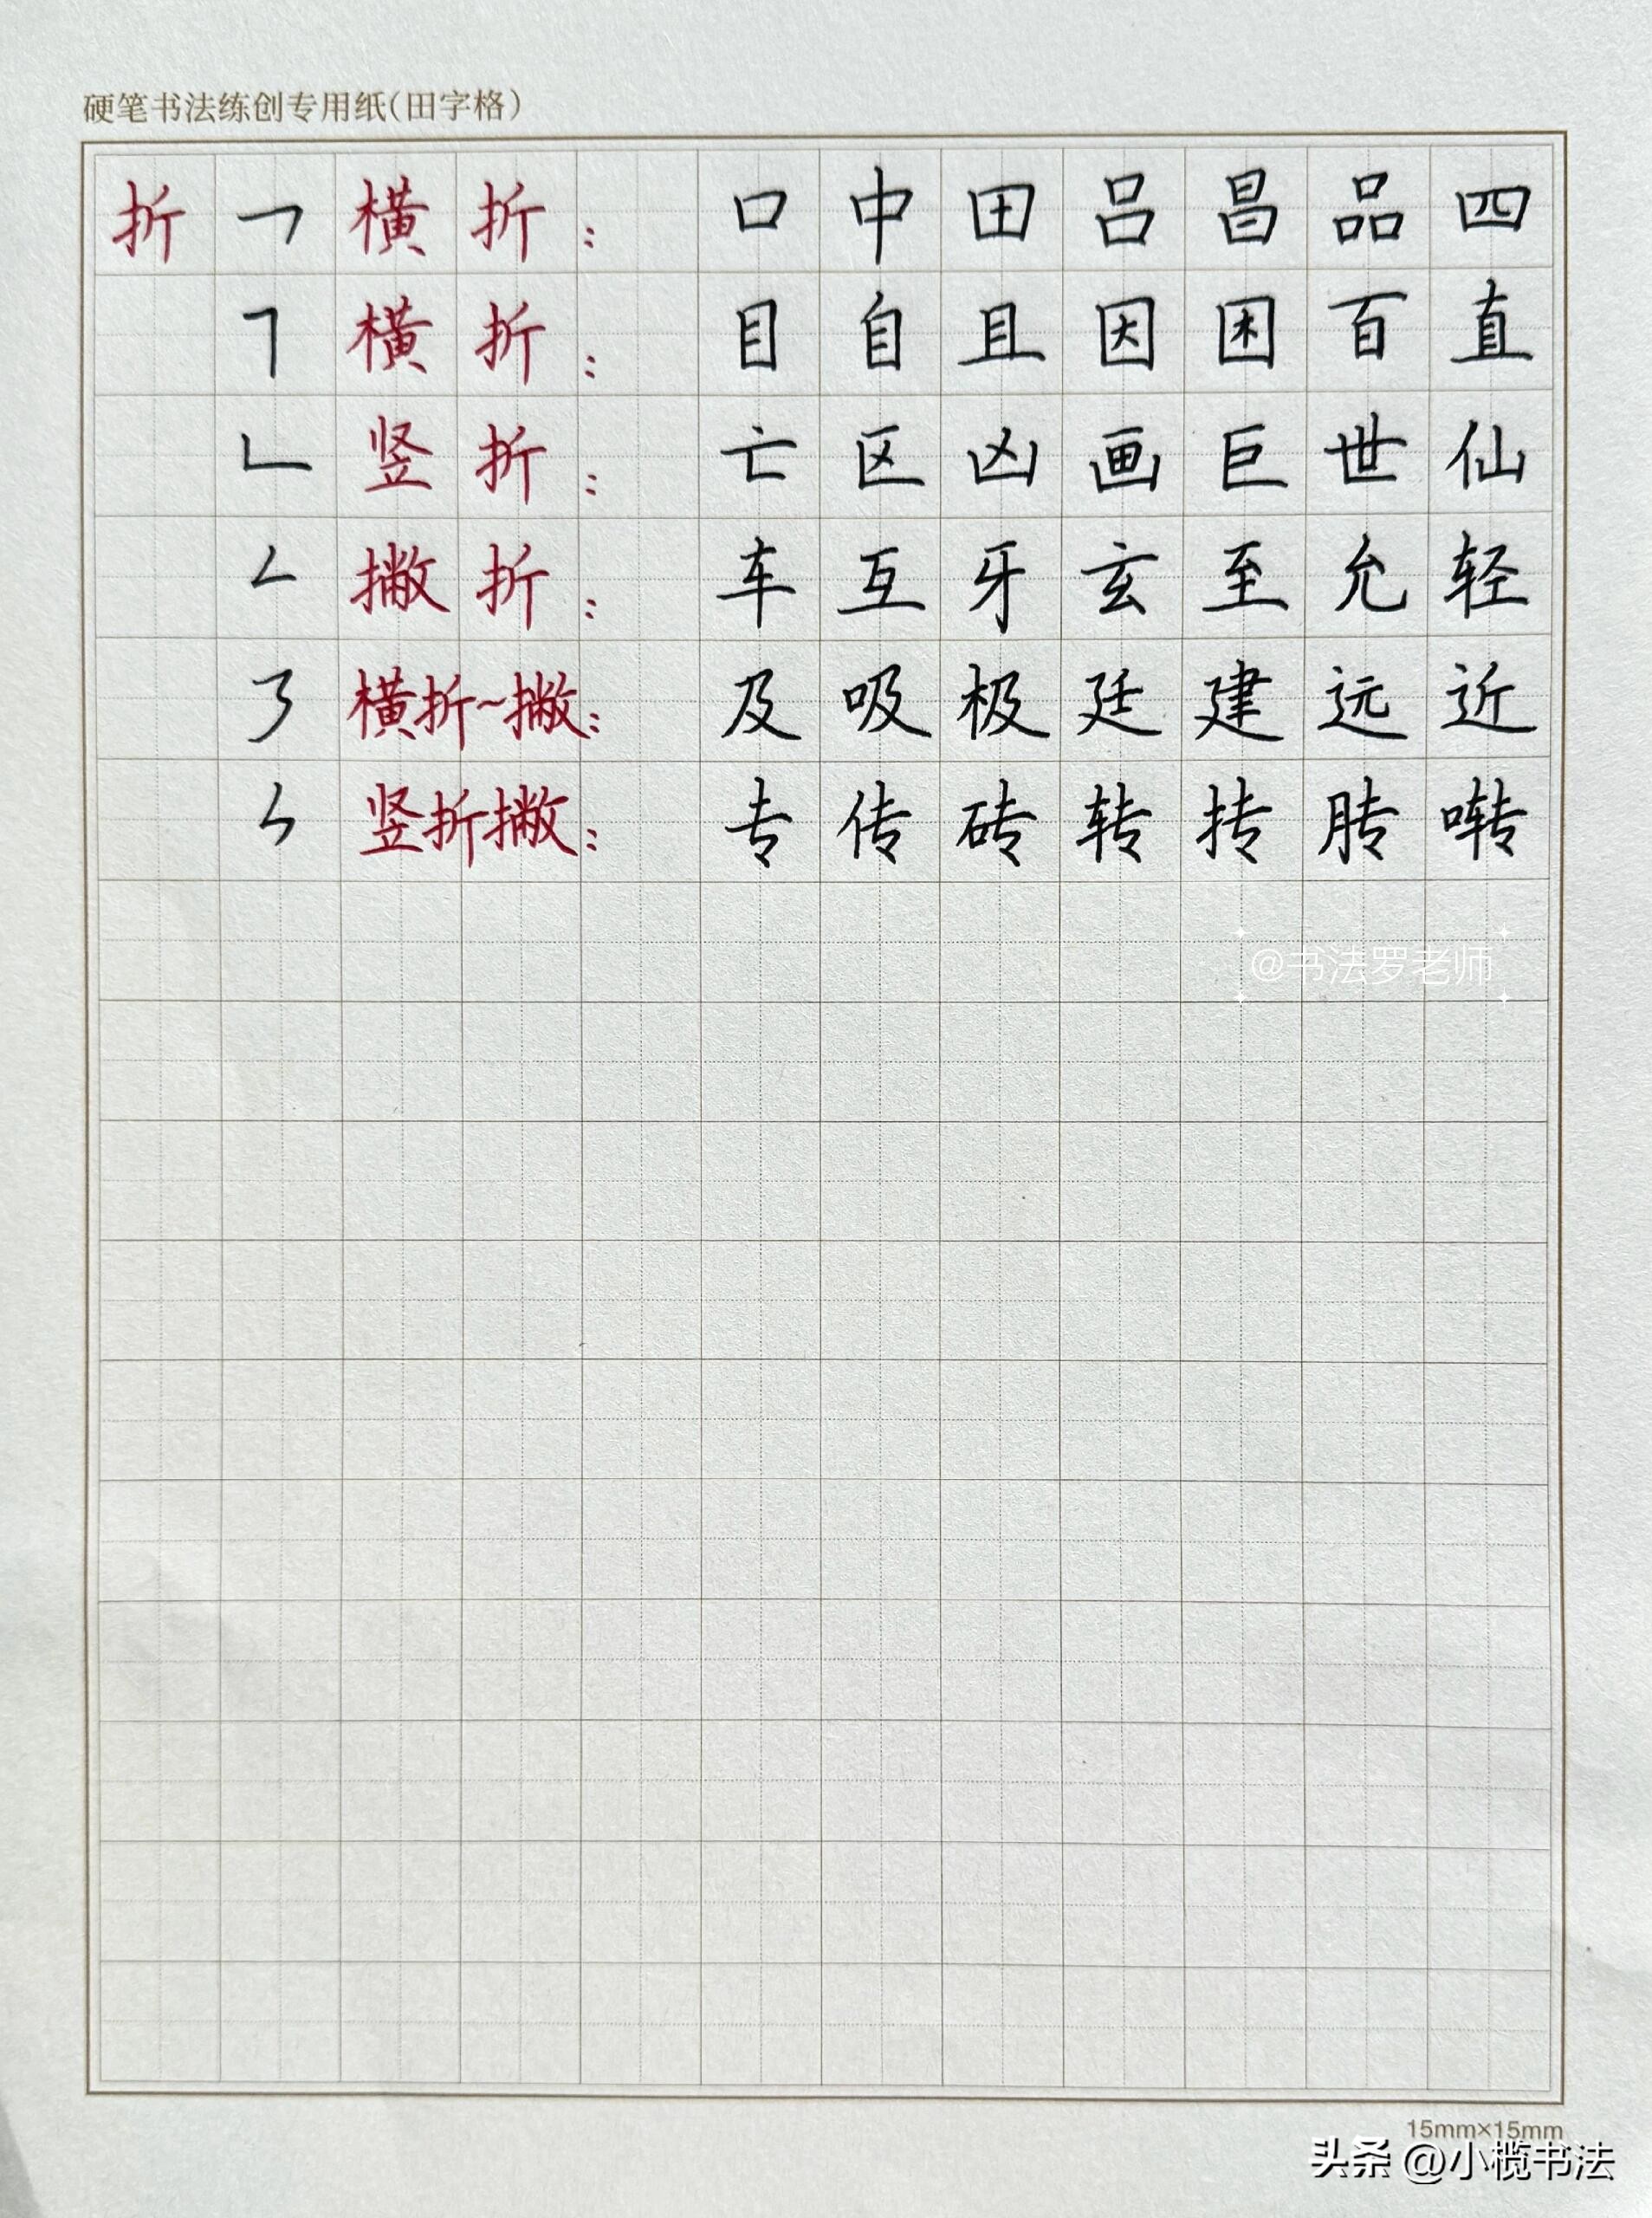 硬笔书法练创专用纸(田字格)
折 ㇕ 横折: 口中田吕昌品四
㇕ 横折: 目自且因困百直
㇗ 竖折: 亡区凶画巨世仙
㇜ 撇折: 车互牙玄至允轻
㇋ 横折~撇: 及吸极廷建远近
ㄣ 竖折撇: 专传砖转抟膞啭
@书法罗老师
15mm×15mm
头条 @小榄书法